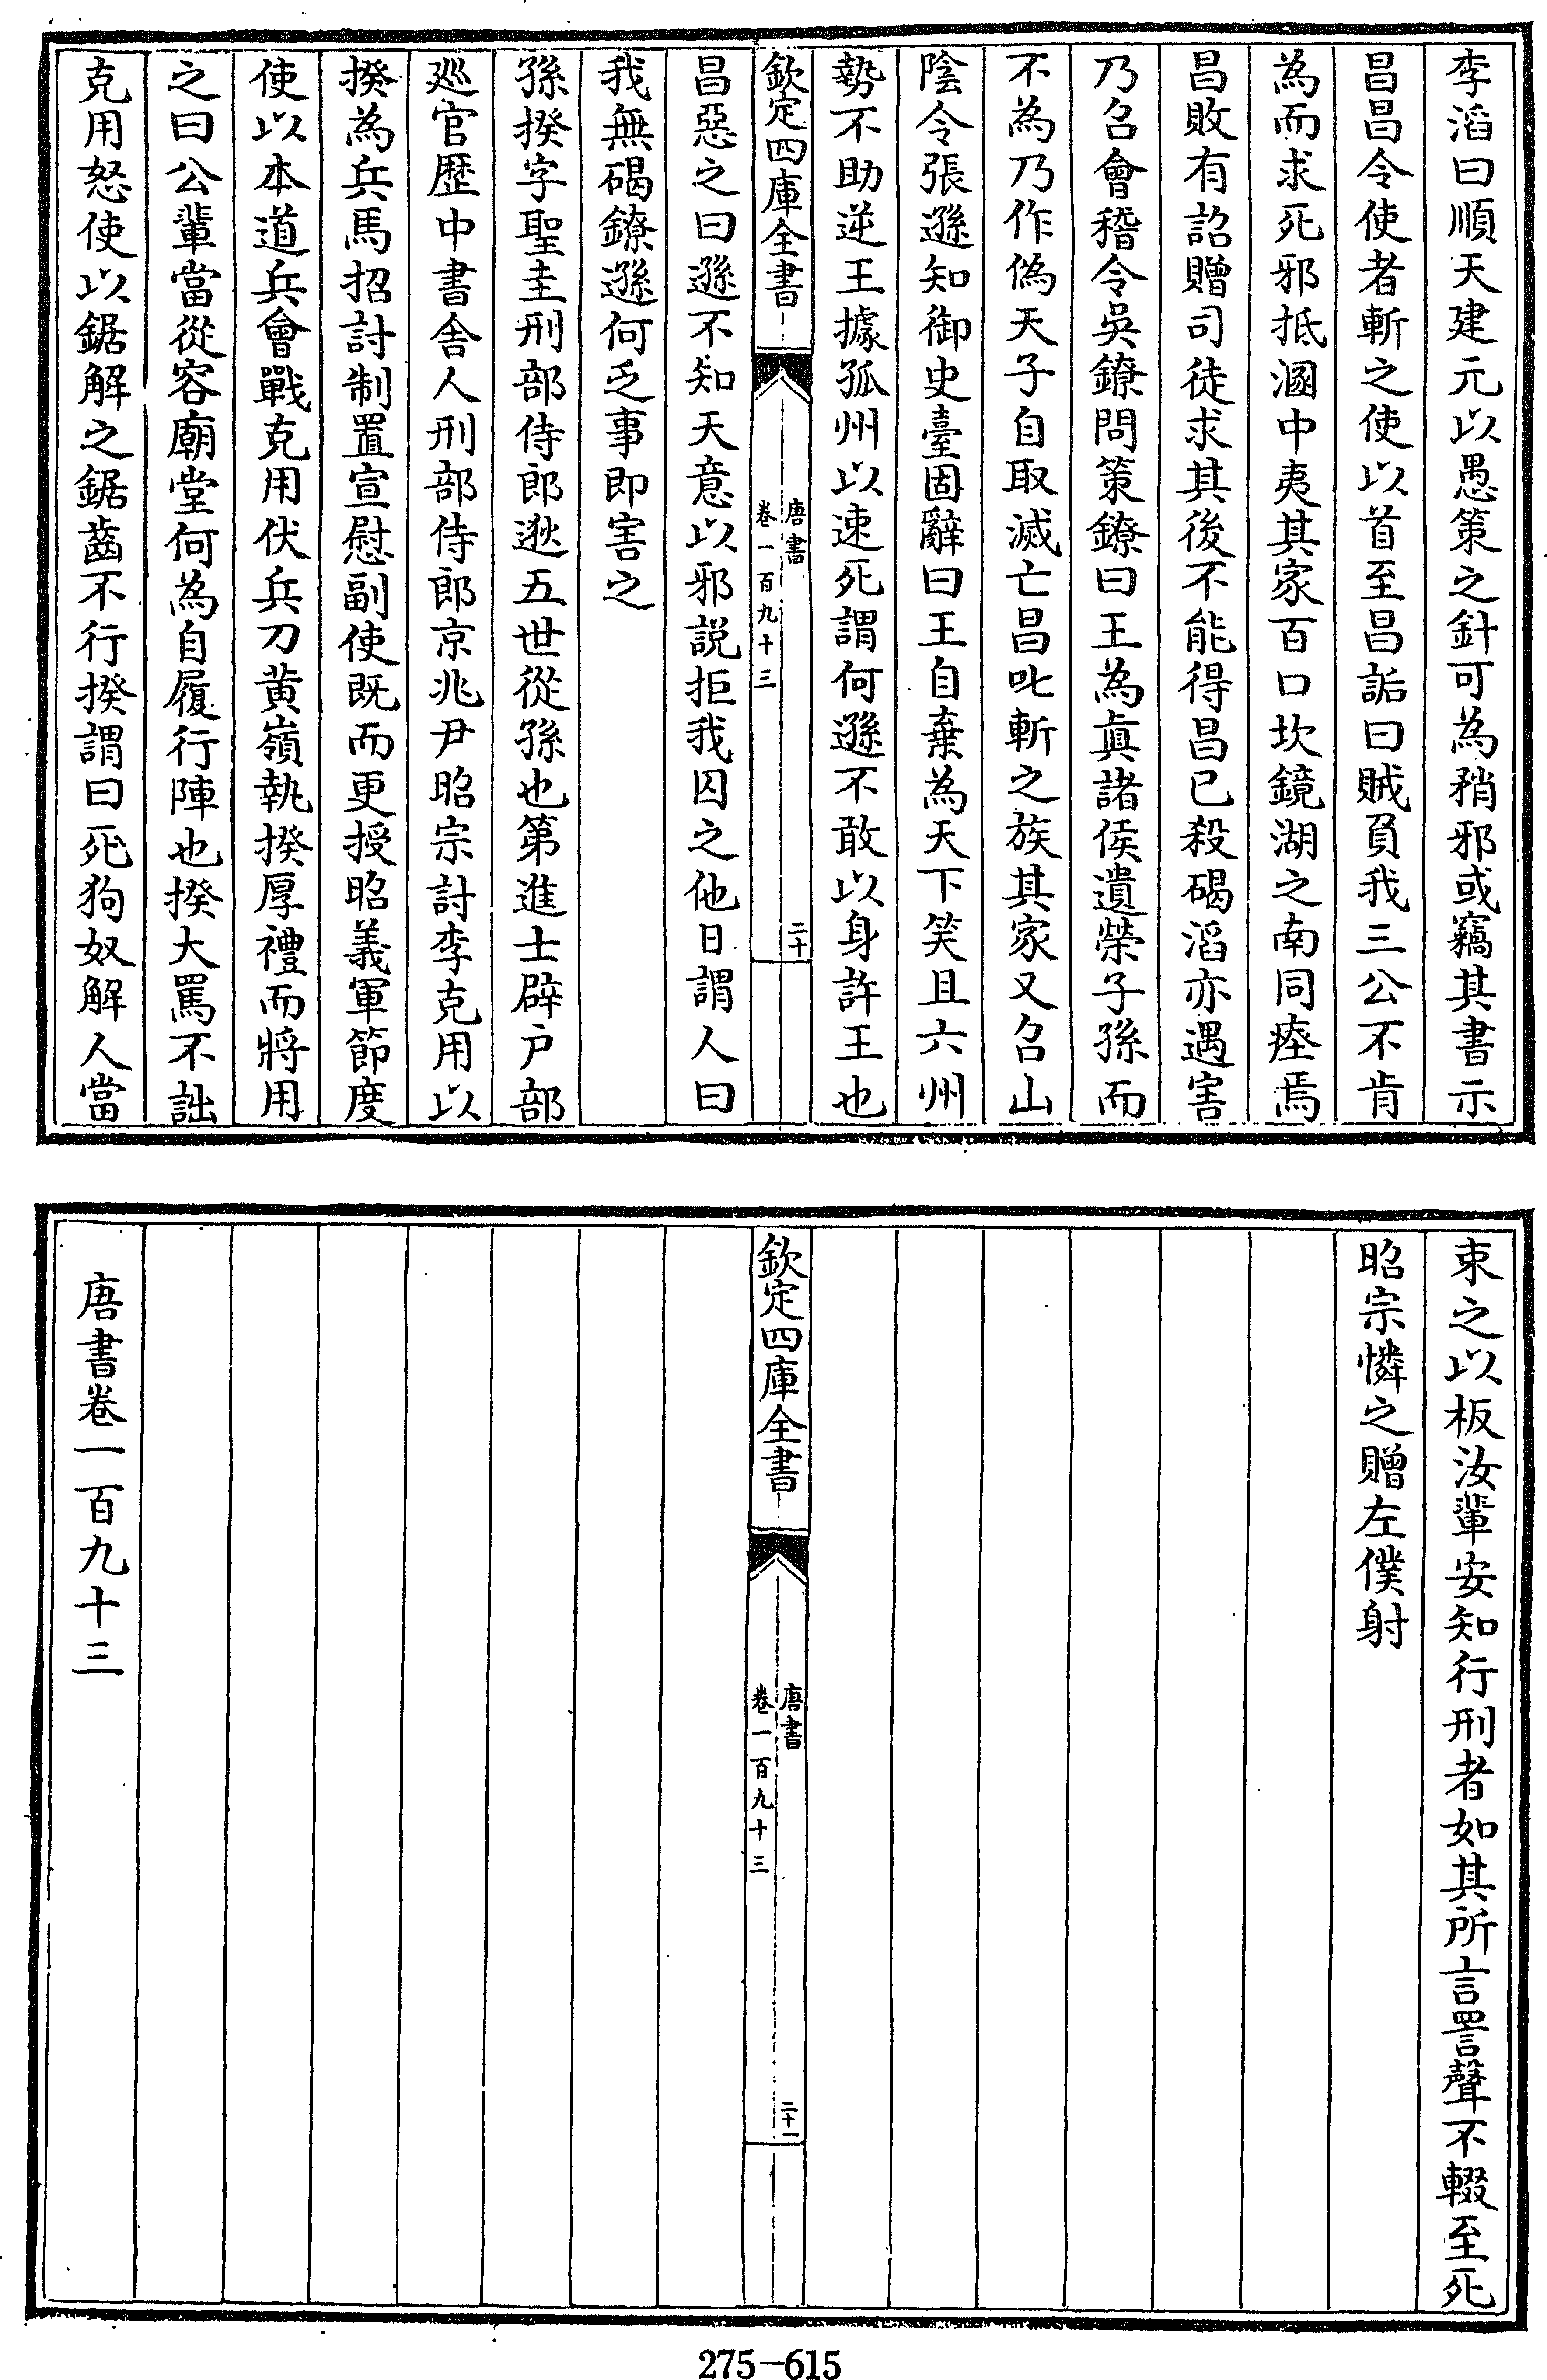 李滔曰順天建元以愚策之針可為矟邪或竊其書示
昌昌令使者斬之使以首至昌詬曰賊負我三公不肯
為而求死邪抵溷中夷其家百口坎鏡湖之南同瘞焉
昌敗有詔贈司徒求其後不能得昌已殺碣滔亦遇害
乃召會稽令吳鐐問策鐐曰王為真諸侯遺榮子孫而
不為乃作偽天子自取滅亡昌叱斬之族其家又召山
陰令張遜知御史臺固辭曰王自棄為天下笑且六州
勢不助逆王據孤州以速死謂何遜不敢以身許王也
欽定四庫全書
唐書
卷一百九十三
二十
昌惡之曰遜不知天意以邪說拒我囚之他日謂人曰
我無碣鐐遜何乏事即害之
孫揆字聖圭刑部侍郎逖五世從孫也第進士辟户部
廵官歷中書舍人刑部侍郎京兆尹昭宗討李克用以
揆為兵馬招討制置宣慰副使既而更授昭義軍節度
使以本道兵會戰克用伏兵刀黄嶺執揆厚禮而將用
之曰公輩當從容廟堂何為自履行陣也揆大罵不詘
克用怒使以鋸解之鋸齒不行揆謂曰死狗奴解人當
束之以板汝輩安知行刑者如其所言詈聲不輟至死
昭宗憐之贈左僕射
欽定四庫全書
唐書
卷一百九十三
二十一
唐書卷一百九十三
275-615